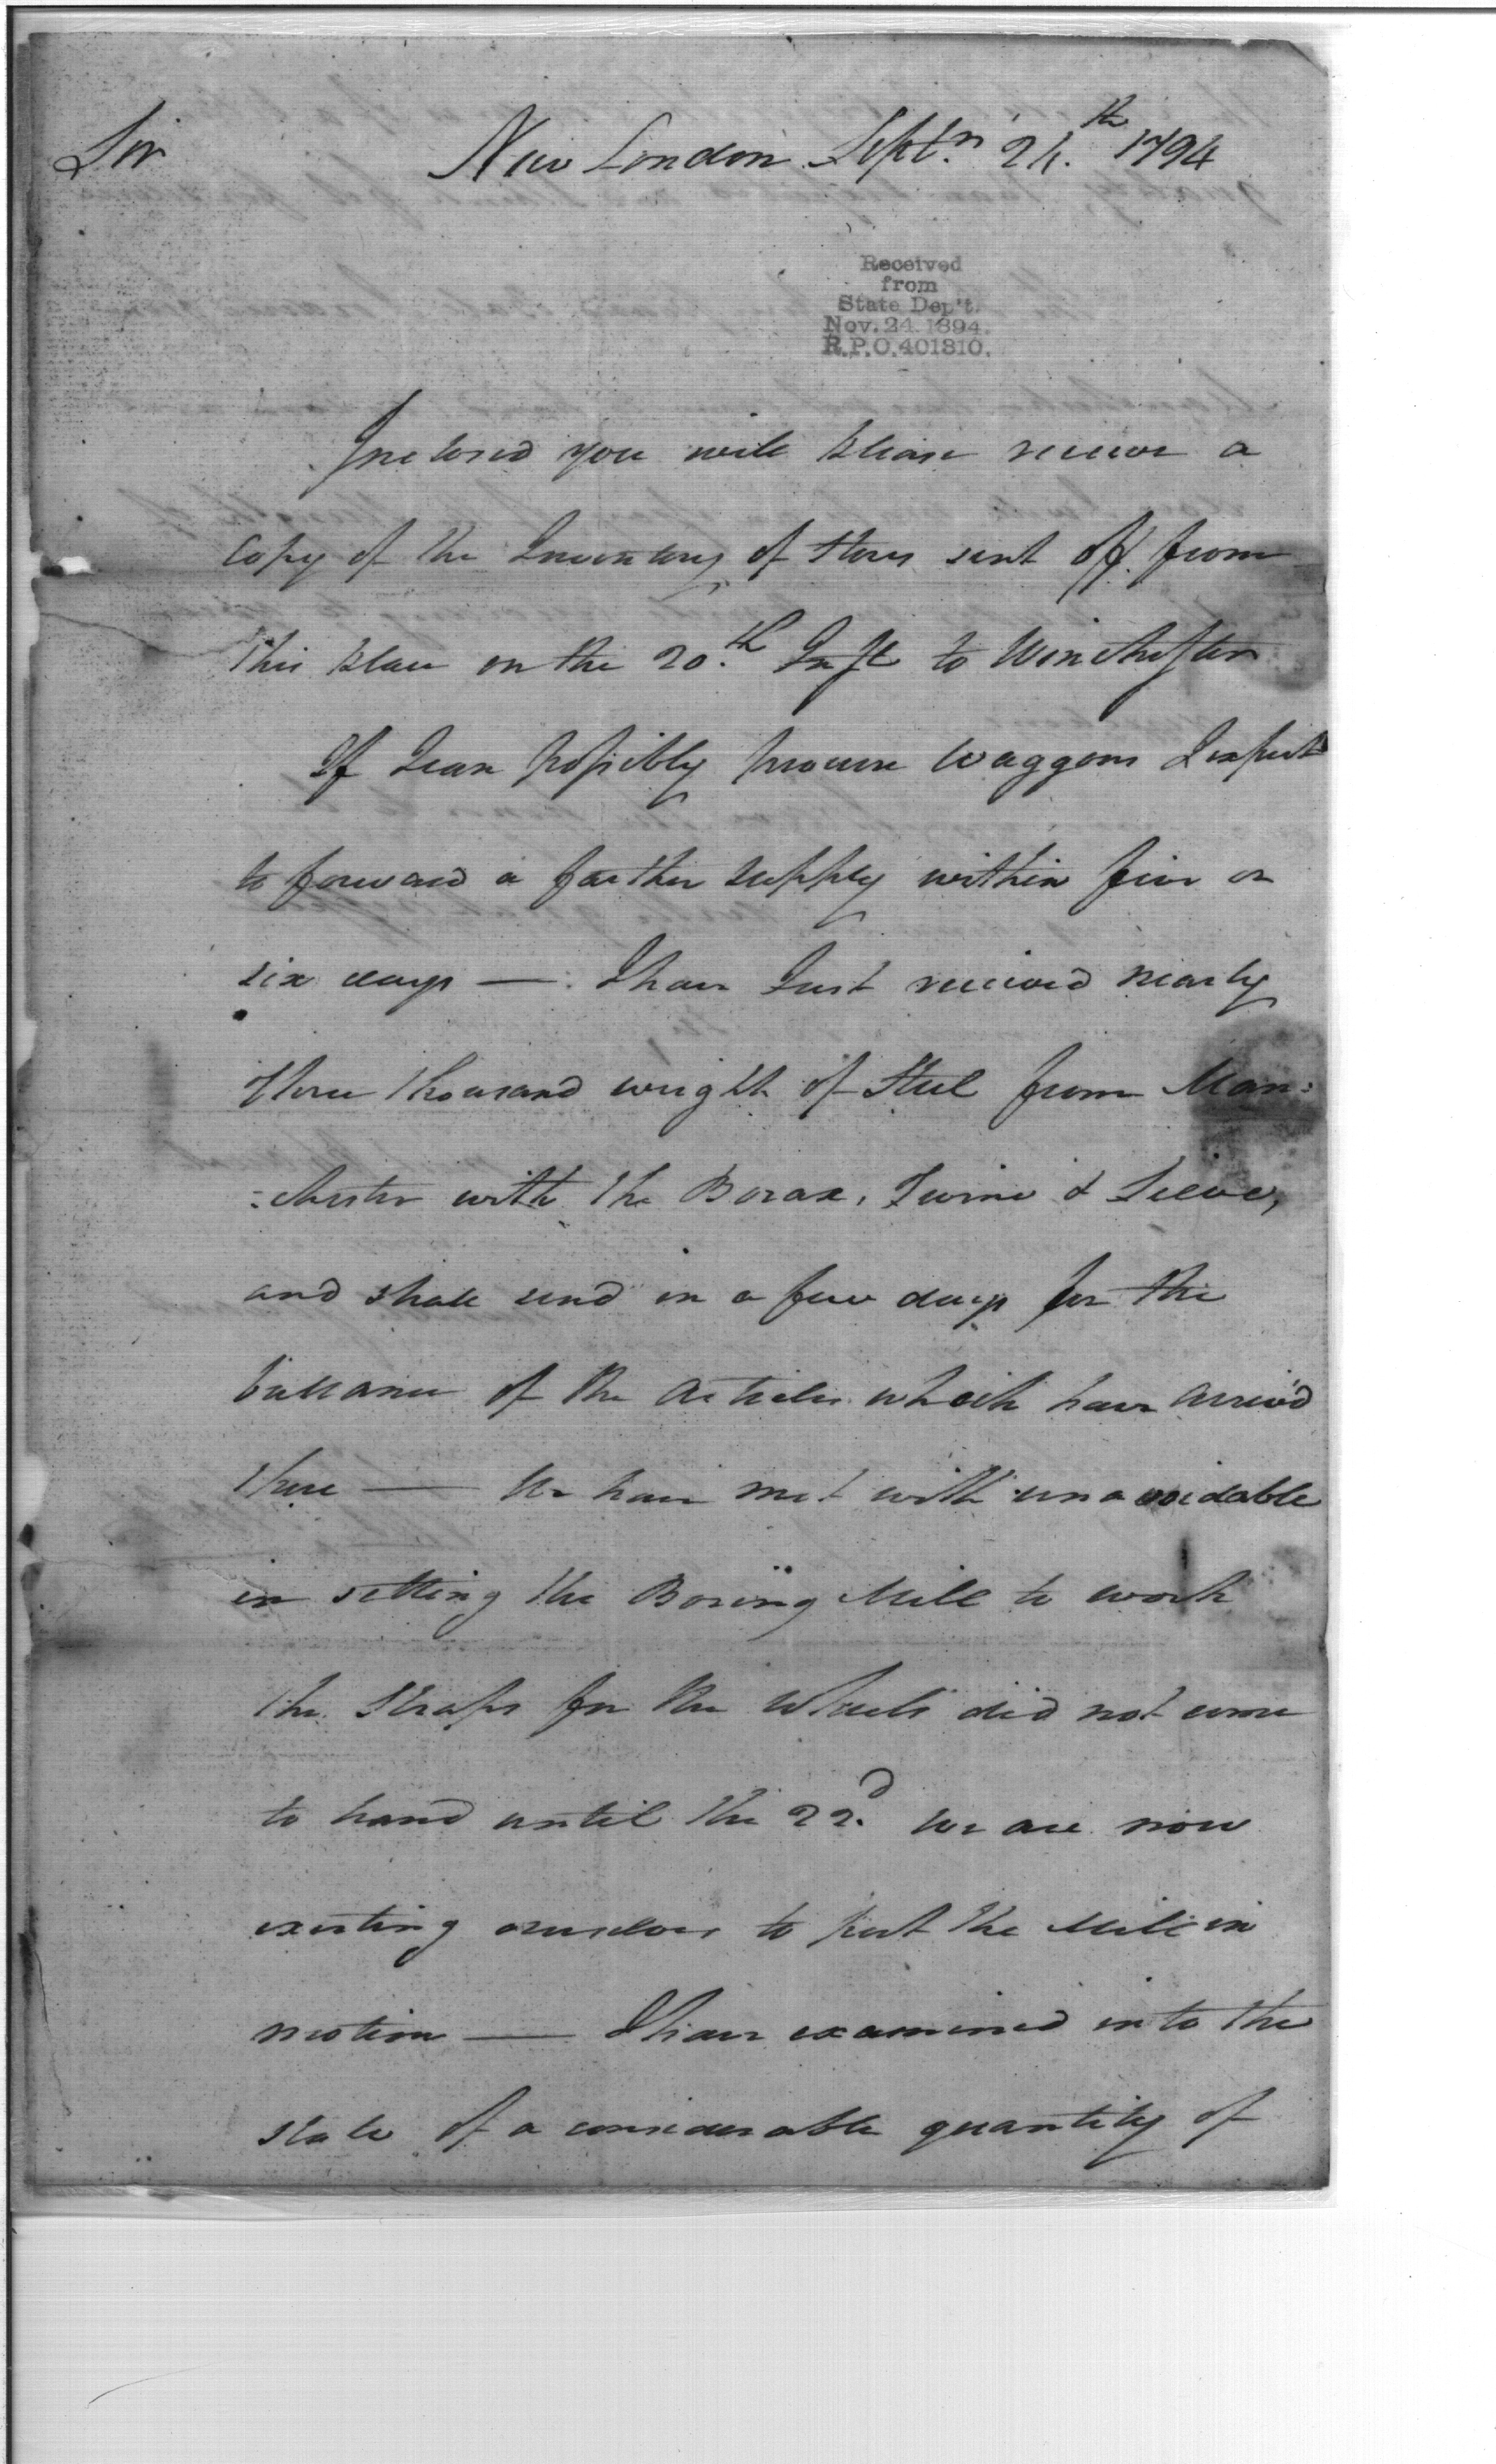 Sir New London Septr. 24th. 1794
Received
from
State Dep't.
Nov. 24. 1894.
R.P.O. 401310.
Inclosed you will please receive a
copy of the Inventory of stores sent off from
this place on the 20th. Inst to Winchester
If I can possibly procure waggons I expect
to forward a farther supply within five or
six days — I have Just received nearly
three thousand weight of Steel from Man=
=chester with the Borax, Twine & Sieve,
and shall send in a few days for the
ballance of the articles which have arrived
there — We have met with unavoidable
in setting the Boring Mill to work
the Straps for the Wheels did not come
to hand until the 22d. we are now
exerting ourselves to put the Mill in
motion — I have examined into the
state of a considerable quantity of